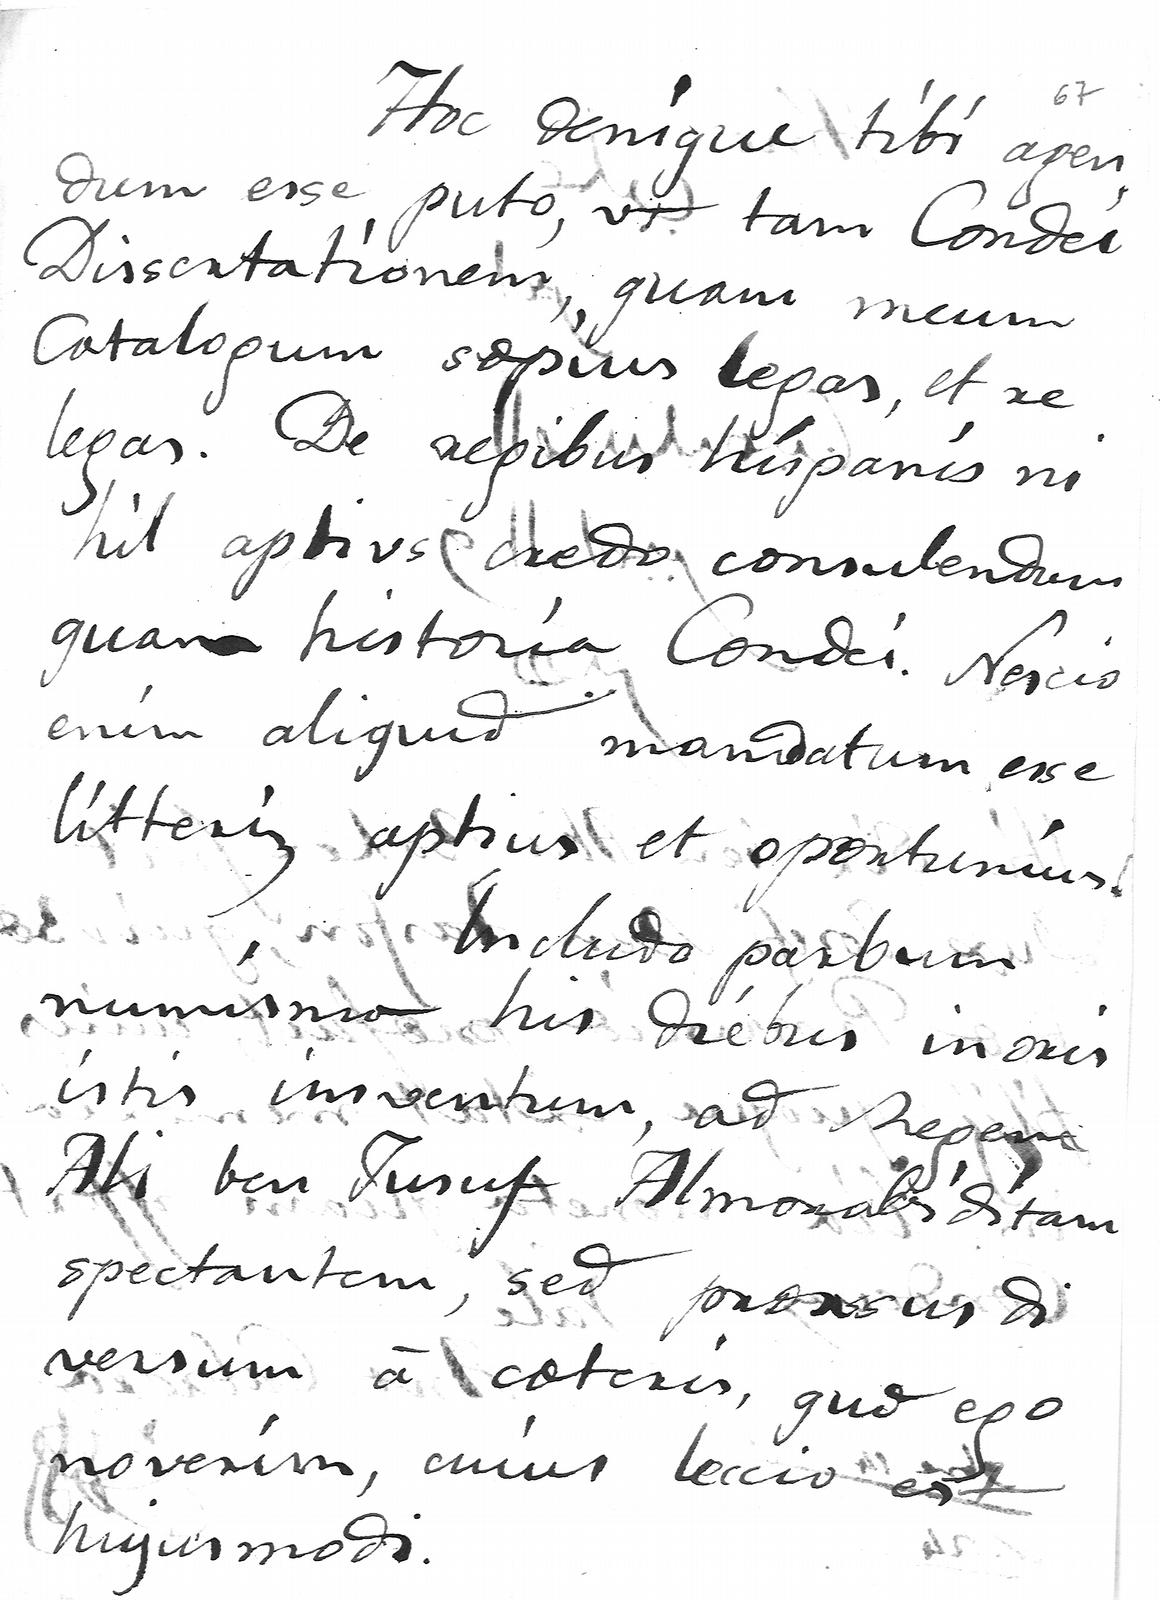 67
Hoc denique tibi agen
dum esse puto, vt tam Condei
Dissertationem, quam meum
Catalogum sæpius legas, et re
legas. De regibus hispanis ni
hil aptivs credo consulendum
quam historia Condei. Nescio
enim aliquid mandatum esse
litteris aptius et oportunius.
Includo parbum
numisma his diébus in oris
istis inventum, ad Regem
Ali ben Jusuf Almorabiditam
spectantem, sed prorssus di
versum ā cæteris, quæ ego
noverim, cuius leccio est
hujusmodi.